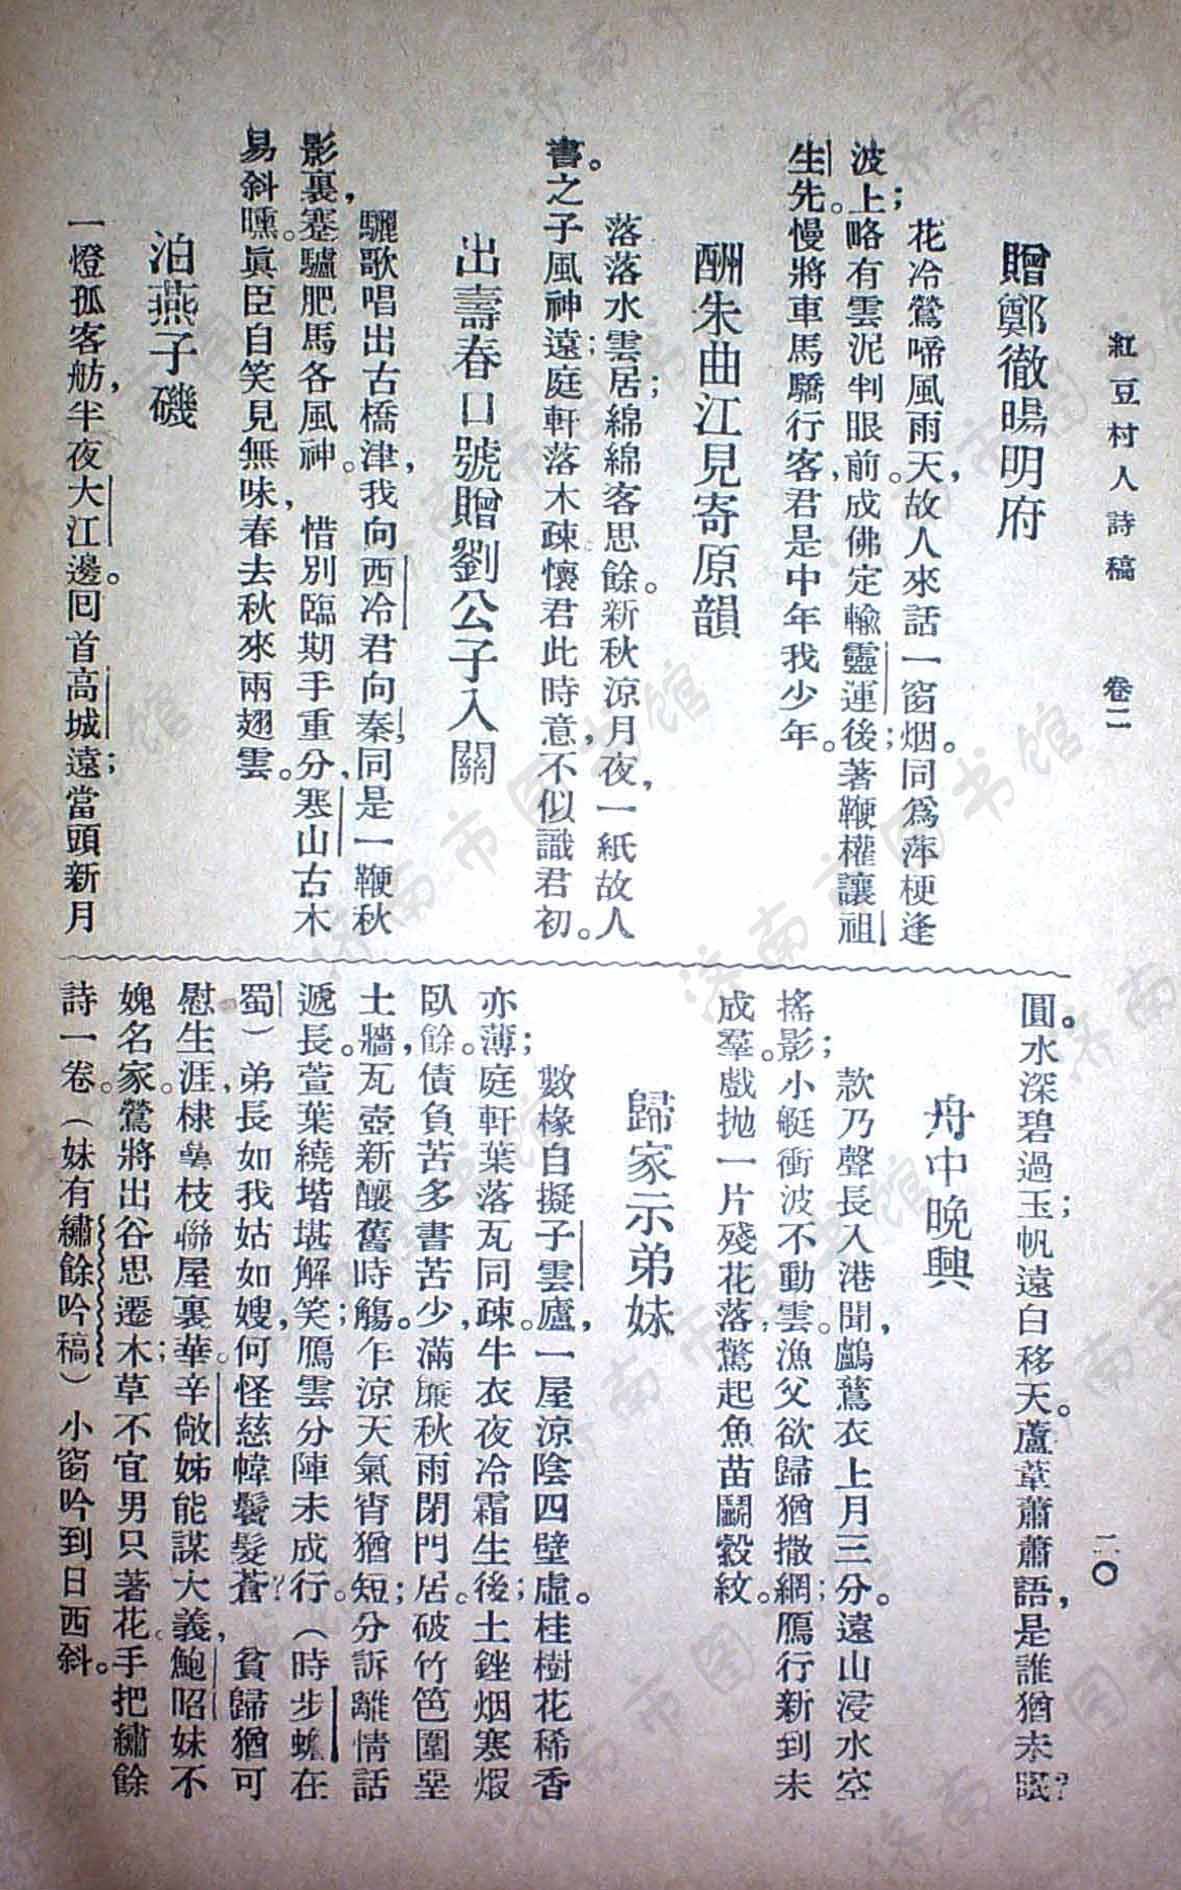 紅豆村人詩稿　卷二
二〇
贈鄭徹暘明府
花冷鶯啼風雨天，故人來話一窗烟。同爲萍梗逢
波上；略有雲泥判眼前。成佛定輸靈運後；著鞭權讓祖
生先。慢將車馬驕行客，君是中年我少年。
酬朱曲江見寄原韻
落落水雲居；綿綿客思餘。新秋涼月夜，一紙故人
書。之子風神遠；庭軒落木疎。懷君此時意，不似識君初。
出壽春口號贈劉公子入關
驪歌唱出古橋津，我向西冷君向秦，同是一鞭秋
影裏，蹇驢肥馬各風神。　惜別臨期手重分，寒山古木
易斜曛。眞臣自笑見無味，春去秋來兩翅雲。
泊燕子磯
一燈孤客舫，半夜大江邊。回首高城遠；當頭新月
圓。水深碧過玉；帆遠白移天。蘆葦蕭蕭語，是誰猶未眠？
舟中晚興
款乃聲長入港聞，鸕鶿衣上月三分。遠山浸水空
搖影；小艇衝波不動雲。漁父欲歸猶撒網；鴈行新到未
成羣。戲拋一片殘花落，驚起魚苗鬭縠紋。
歸家示弟妹
數椽自擬子雲廬，一屋涼陰四壁虛。桂樹花稀香
亦薄；庭軒葉落瓦同疎。牛衣夜冷霜生後；土銼烟寒煅
臥餘。債負苦多書苦少，滿簾秋雨閉門居。破竹笆圍堊
土牆，瓦壺新釀舊時觴。乍涼天氣宵猶短；分訴離情話
遞長。萱葉繞堦堪解笑，鴈雲分陣未成行。（時步蟾在
蜀）弟長如我姑如嫂，何怪慈幃鬢髮蒼？　貧歸猶可
慰生涯，棣萼枝聯屋裏華。辛敞姊能謀大義，鮑昭妹不
媿名家。鶯將出谷思遷木；草不宜男只著花。手把繡餘
詩一卷。（妹有繡餘吟稿）小窗吟到日西斜。